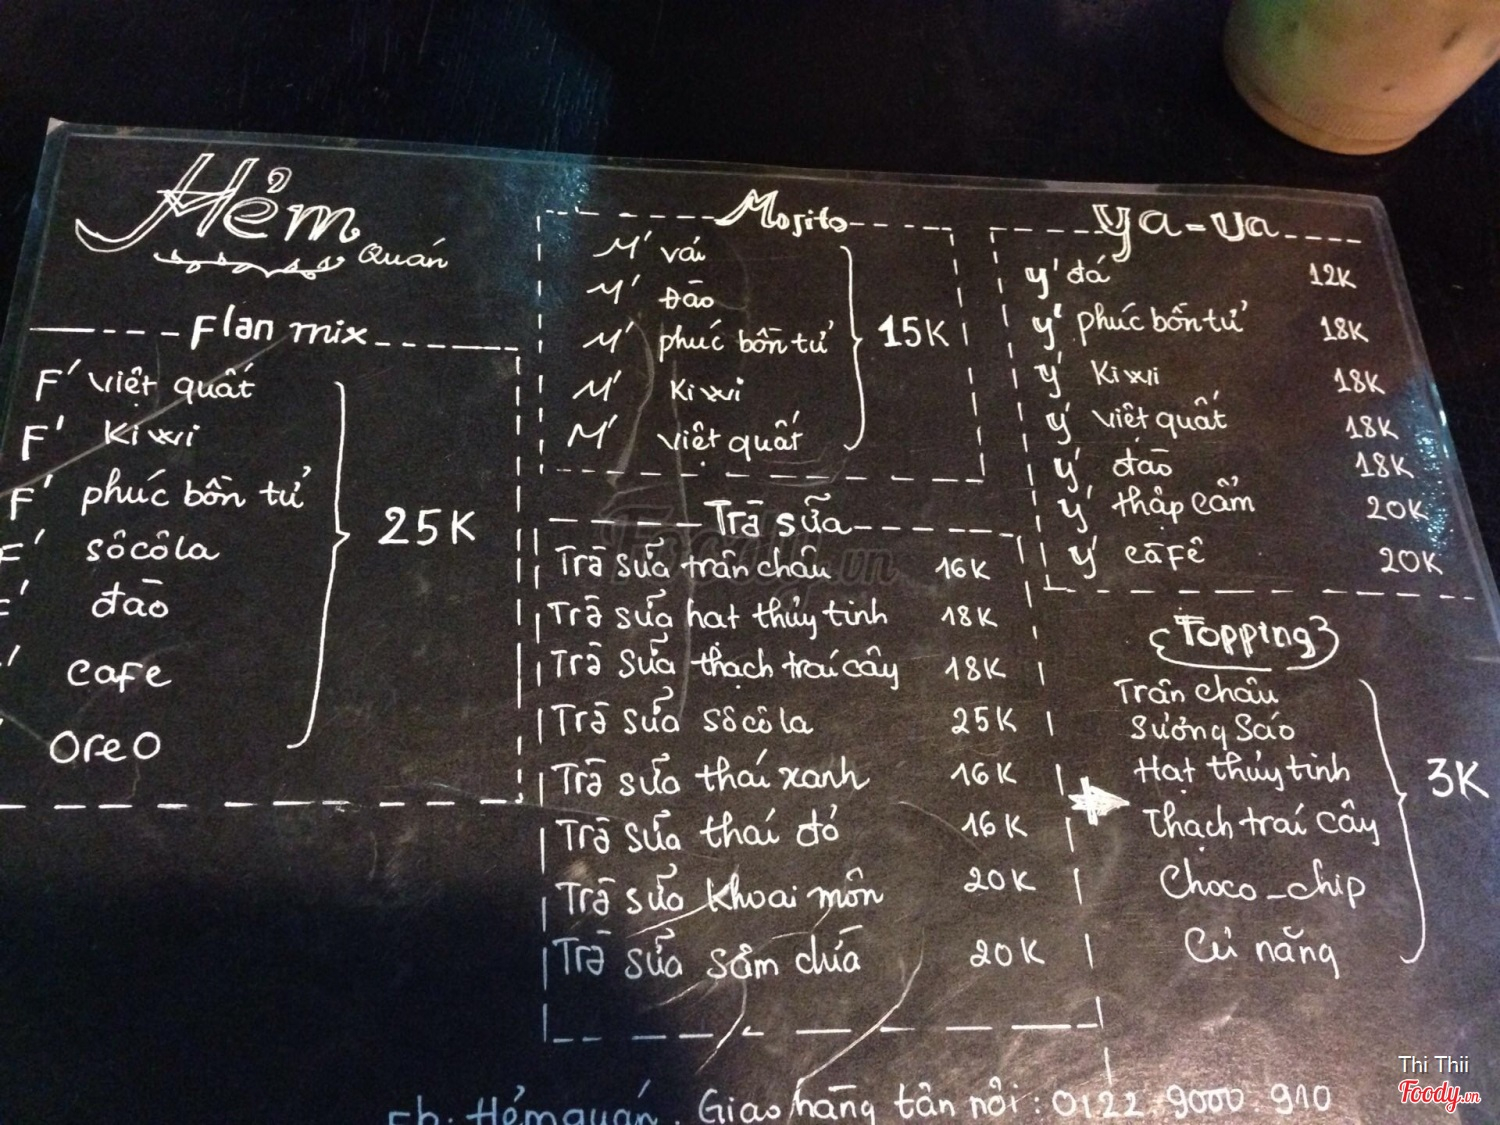 Hẻm
Quán
Flan mix
F' việt quất
F' Kiwi
F' phúc bồn tử
F' sôcôla
F' đào
cafe
Oreo
25K
Mojito
M' vải
M' Đào
M' phúc bồn tử
M' Kiwi
M' việt quất
15K
Trà sữa
Trà sữa trân châu 16K
Trà sữa hạt thủy tinh 18K
Trà sữa thạch trái cây 18K
Trà sữa sôcôla 25K
Trà sữa thái xanh 16K
Trà sữa thái đỏ 16K
Trà sữa khoai môn 20K
Trà sữa sâm dứa 20K
ya-ua
y' đá 12K
y' phúc bồn tử 18K
y' Kiwi 18K
y' việt quất 18K
y' đào 18K
y' thập cẩm 20K
y' càfê 20K
Topping
Trân châu
Sương sáo
Hạt thủy tinh
Thạch trái cây
Choco-chip
Củ năng
3K
Fb: Hẻmquán. Giao hàng tận nơi: 0122.9000.910
Foody.vn
Thi Thii
Foody.vn